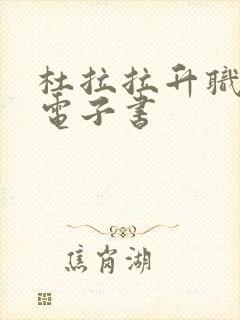 杜拉拉升職
電子書
焦崗湖